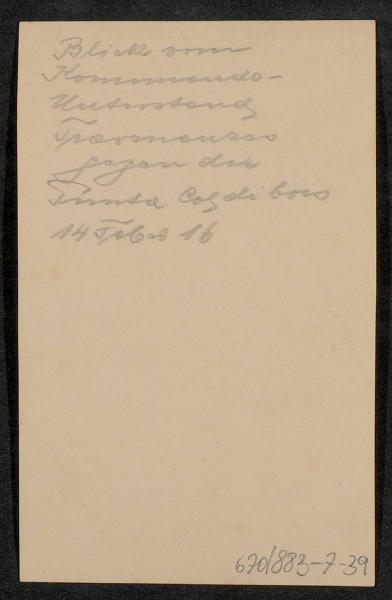 Blick vom
Kommando-
Unterstand
Travenanzes
gegen die
Punta Col di bois
14 Feber 16
670/883-7-39